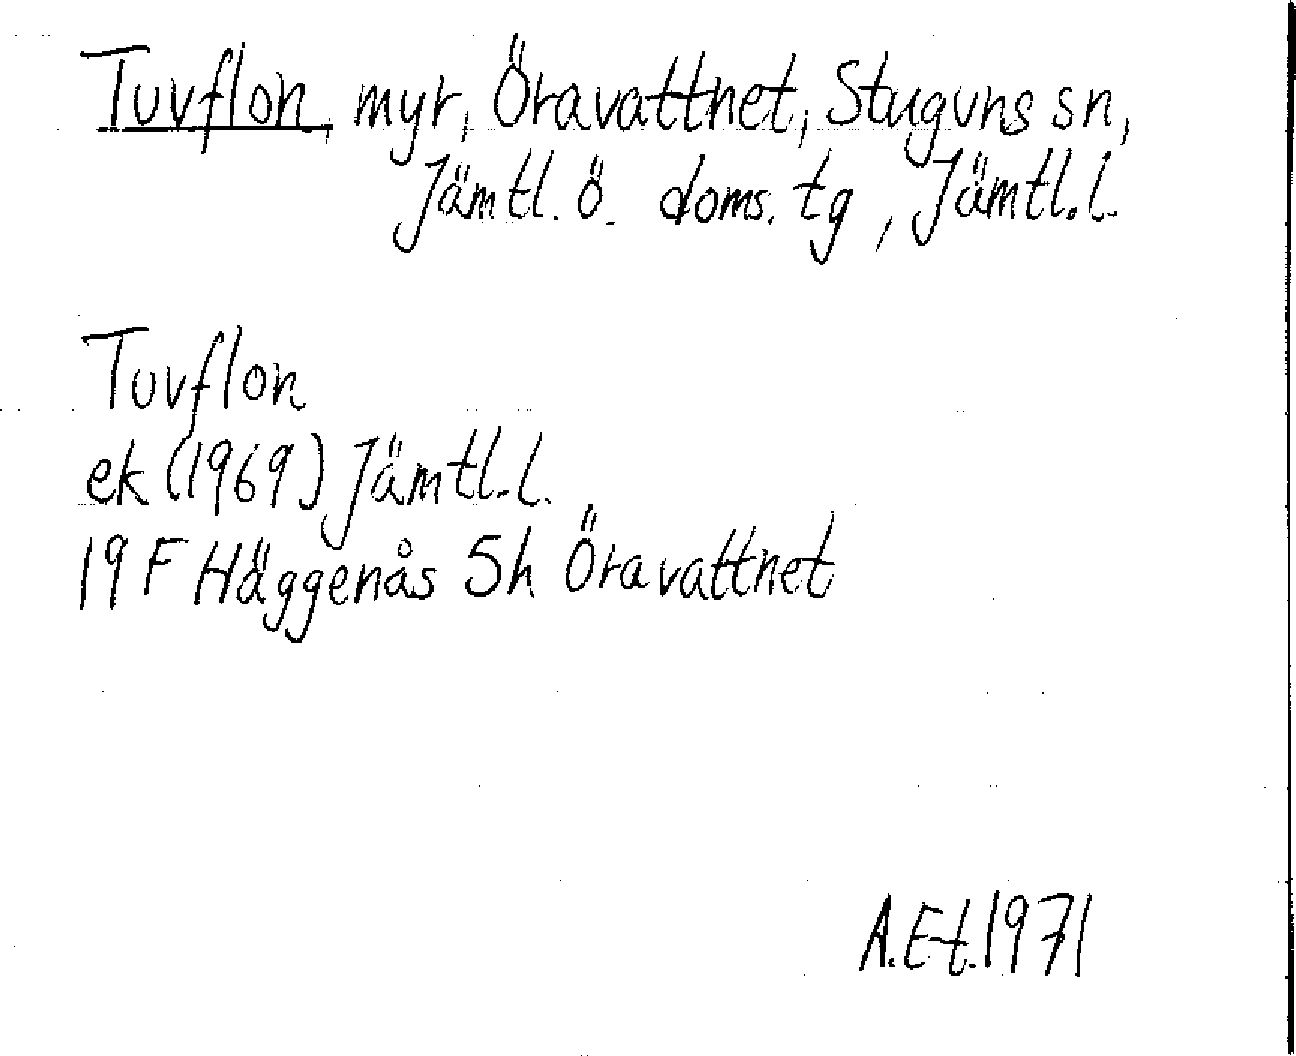 Tuvflon, myr, Öravattnet, Stuguns sn,
Jämtl. ö. doms. tg, Jämtl.l.
Tuvflon
ek (1969) Jämtl.l.
19 F Häggenås 5h Öravattnet
A.E-t.1971